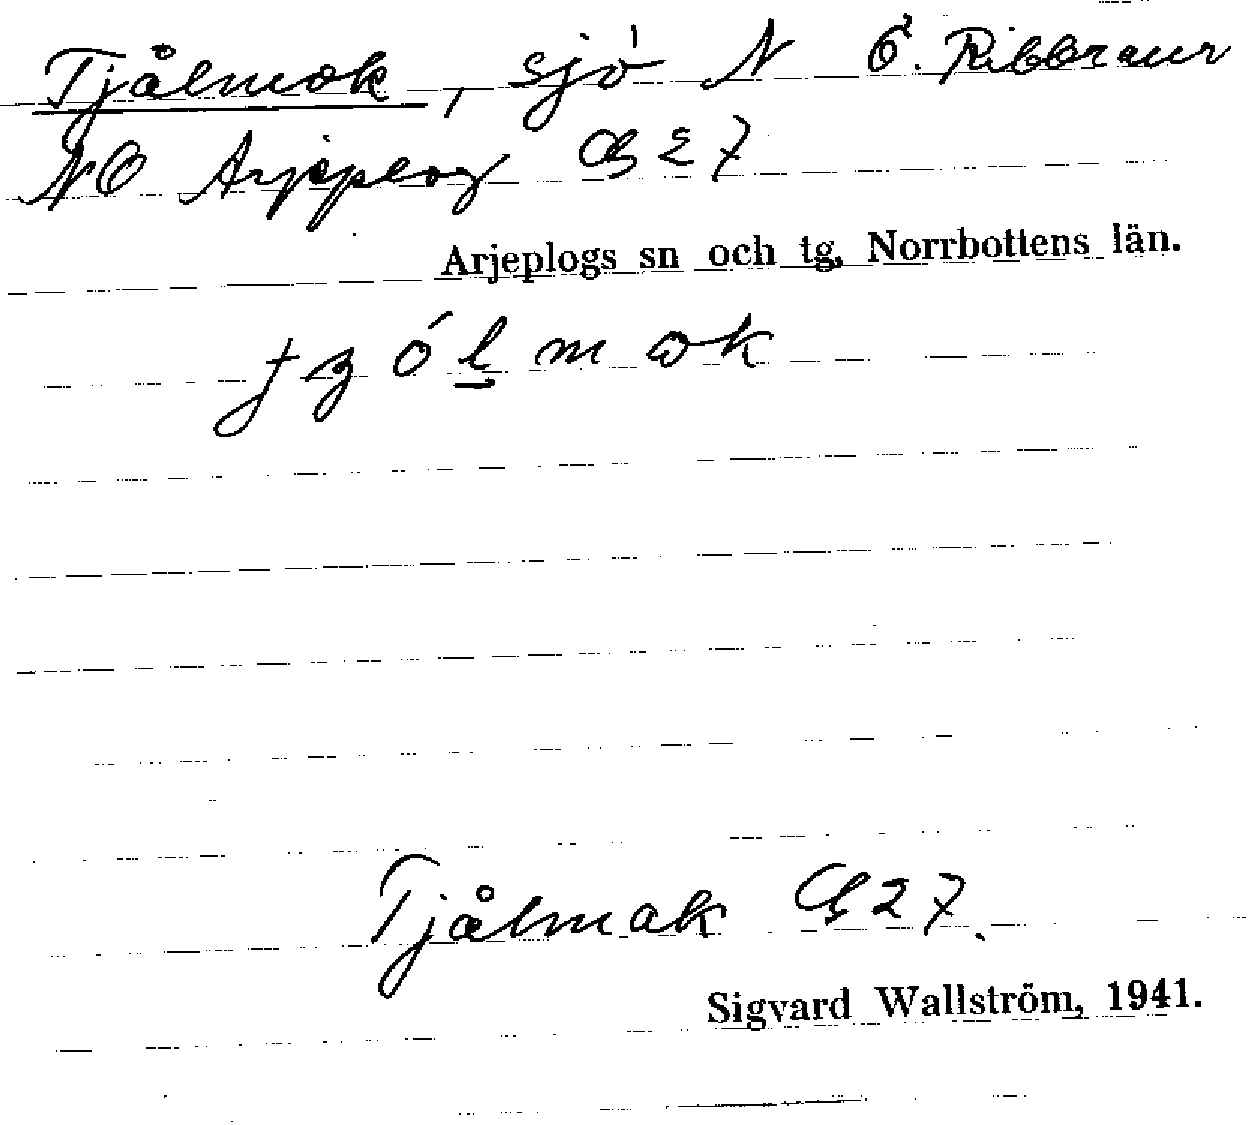 Tjålmok, sjö N Ö. Ribbraur
NO Arjeplog GS 27
Arjeplogs sn och tg, Norrbottens län.
Tjålmak GS 27.
Sigvard Wallström, 1941.